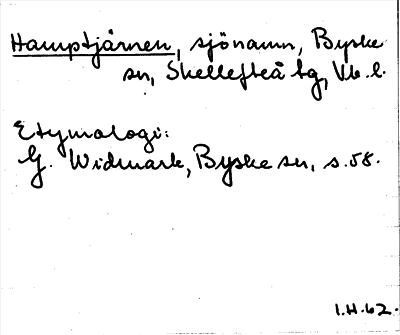 Hamptjärnen, sjönamn, Byske
sn, Skellefteå tg, Vb. l.
Etymologi:
G. Widmark, Byske sn, s. 58.
I.H.62.